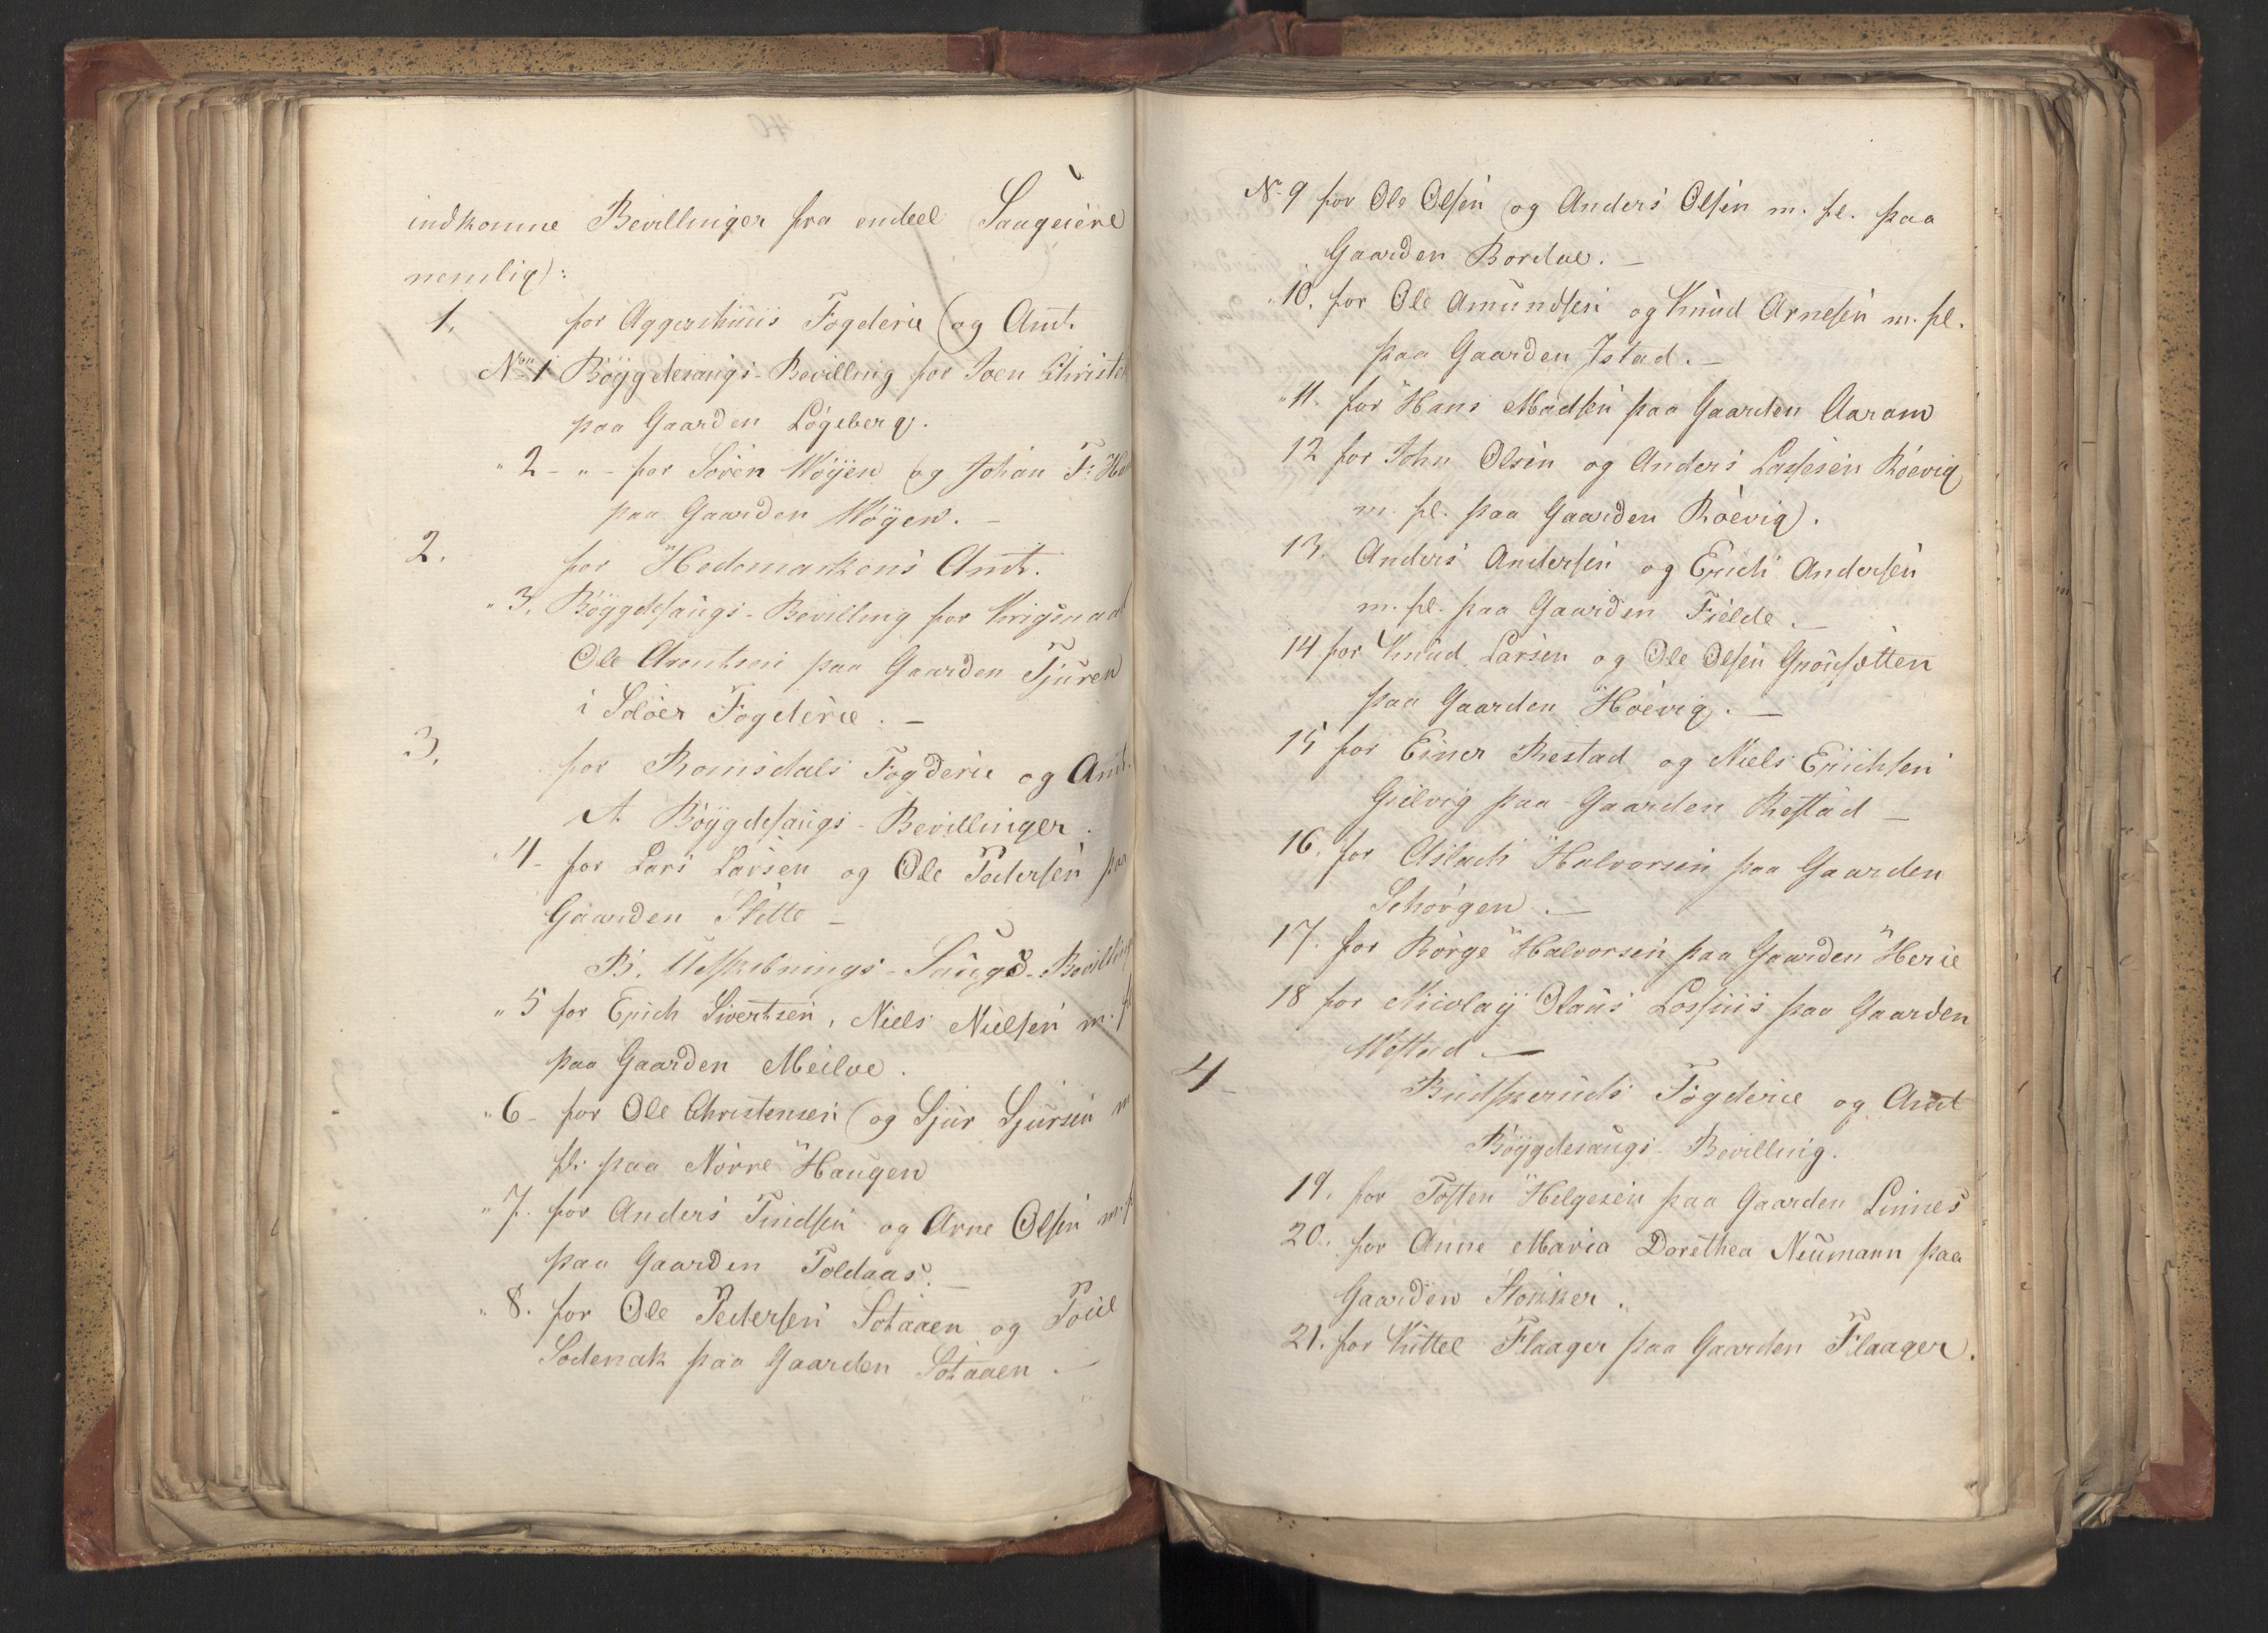 40
indkomne Bevillinger fra endeel Saugeiere
nemlig:
1. for Aggershuus Fogderie og Amt.
No 1 Böygdesaugs-Bevilling for Joen Christe
paa Gaarden Lögeberg.
" 2 - " - for Sören Wöyen og Johan F:
paa Gaarden Wöyen. -
2. for Hedemarkens Amt.
" 3. Böygdesaugs-Bevilling for Krigsraad
Ole Arentsen paa Gaarden Tjuren
i Solöer Fogderie. -
3. for Romsdals Fogderie og Amt.
A Böygdesaugs-Bevillinger.
" 4 - for Lars Larsen og Ole Pedersen paa
Gaarden Stette -
B. Udskibnings-Saugs-Bevilling
" 5 for Erich Sivertsen, Niels Nielsen m. f
paa Gaarden Meilve.
" 6 - for Ole Christensen og Sjur Sjursen m
fl. paa Nörre Haugen
" 7. for Anders Findsen og Arne Olsen m. f
paa Gaarden Toldaas. -
" 8. for Ole Pedersen Sotaaen og Poul
Sodenak paa Gaarden Sotaaen. -
No 9 for Ole Olsen og Anders Olsen m. fl. paa
Gaarden Bordve. -
" 10. for Ole Amundsen og Knud Arnesen m. fl.
paa Gaarden Istad. -
" 11. for Hans Madsen paa Gaarden Aaram
12 for John Olsen og Anders Lassesen Röevig
m. fl. paa Gaarden Röevig.
13. Anders Andersen og Erich Andersen
m. fl. paa Gaarden Fielde. -
14 for Knud Larsen og Ole Olsen
paa Gaarden Höevig. -
15 for Einer Restad og Niels Erichsen
Gielvig paa Gaarden Restad -
16. for Aslach Halvorsen paa Gaarden
Schorgen. -
17. for Börge Halvorsen paa Gaarden Herie
18 for Nicolay Olaus Lossius paa Gaarden
Westad -
4 - Budskeruds Fogderie og Amt
Böygdesaugs-Bevilling.
19. for Tosten Helgesen paa Gaarden Linnes
20. for Anne Maria Dorethea Neumann paa
Gaarden Stokker.
21. for Kittel Flaager paa Gaarden Flaager.